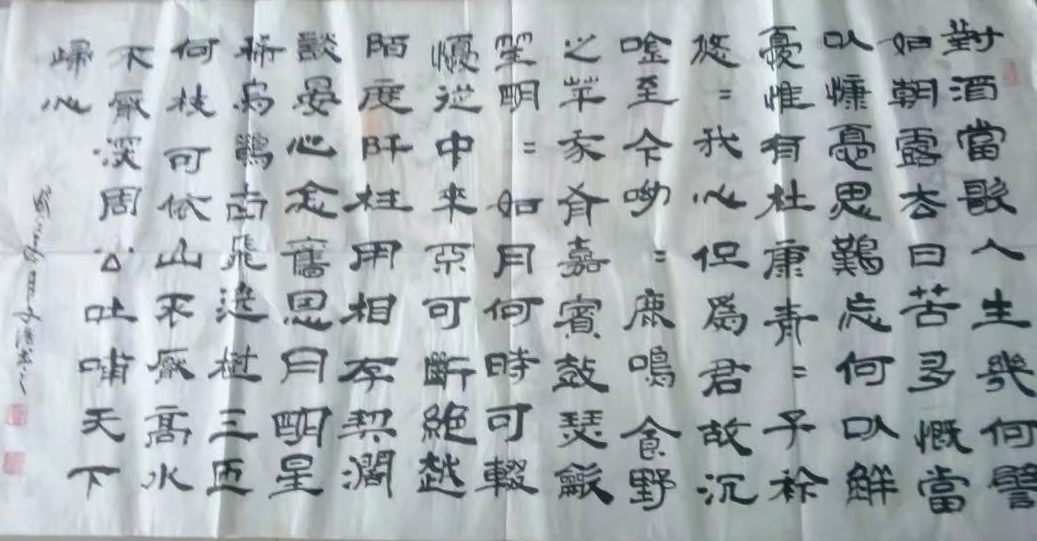 對酒當歌人生幾何譬
如朝露去日苦多慨當
以慷憂思難忘何以解
憂惟有杜康青=子衿
悠=我心但爲君故沉
唫至今呦=鹿鳴食野
之苹我有嘉賓鼓瑟龡
笙明=如月何時可輟
憂從中來不可斷絕越
陌度阡枉用相存契闊
談宴心念舊恩月明星
稀烏鵲南飛遶樹三匝
何枝可依山不厭高水
不厭深周公吐哺天下
歸心